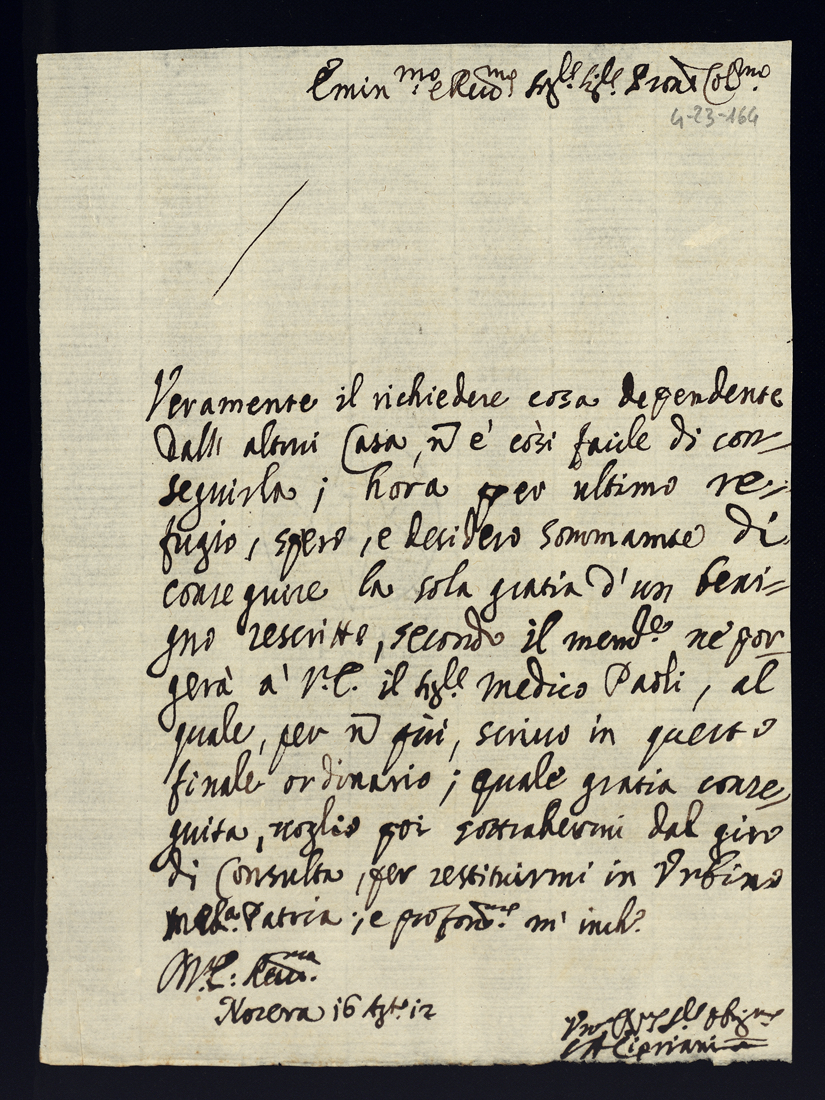 Emin.mo e Reu.mo Sig.re Sig.re Prone Col.mo
4-23-164
Veramente il richiedere cosa dependente
dall' altrui Casa, ñ è così facile di con=
seguirla; hora per ultimo re=
fugio, spero, e desidero sommamte di
conseguire la sola gratia d'un beni=
gno rescritto, secondo il mem.le ne por
gerà a' V.E. il Sig.re Medico Paoli, al
quale, per ñ più, scrivo in questo
finale ordinario; quale gratia conse
guita, voglio poi sottrahermi dal giro
di Consulta, per restituirmi in Urbino
Patria; e profon.te m' inch.o
V.E. Reu.ma
Nocera 16 Agto 12
Cipriani